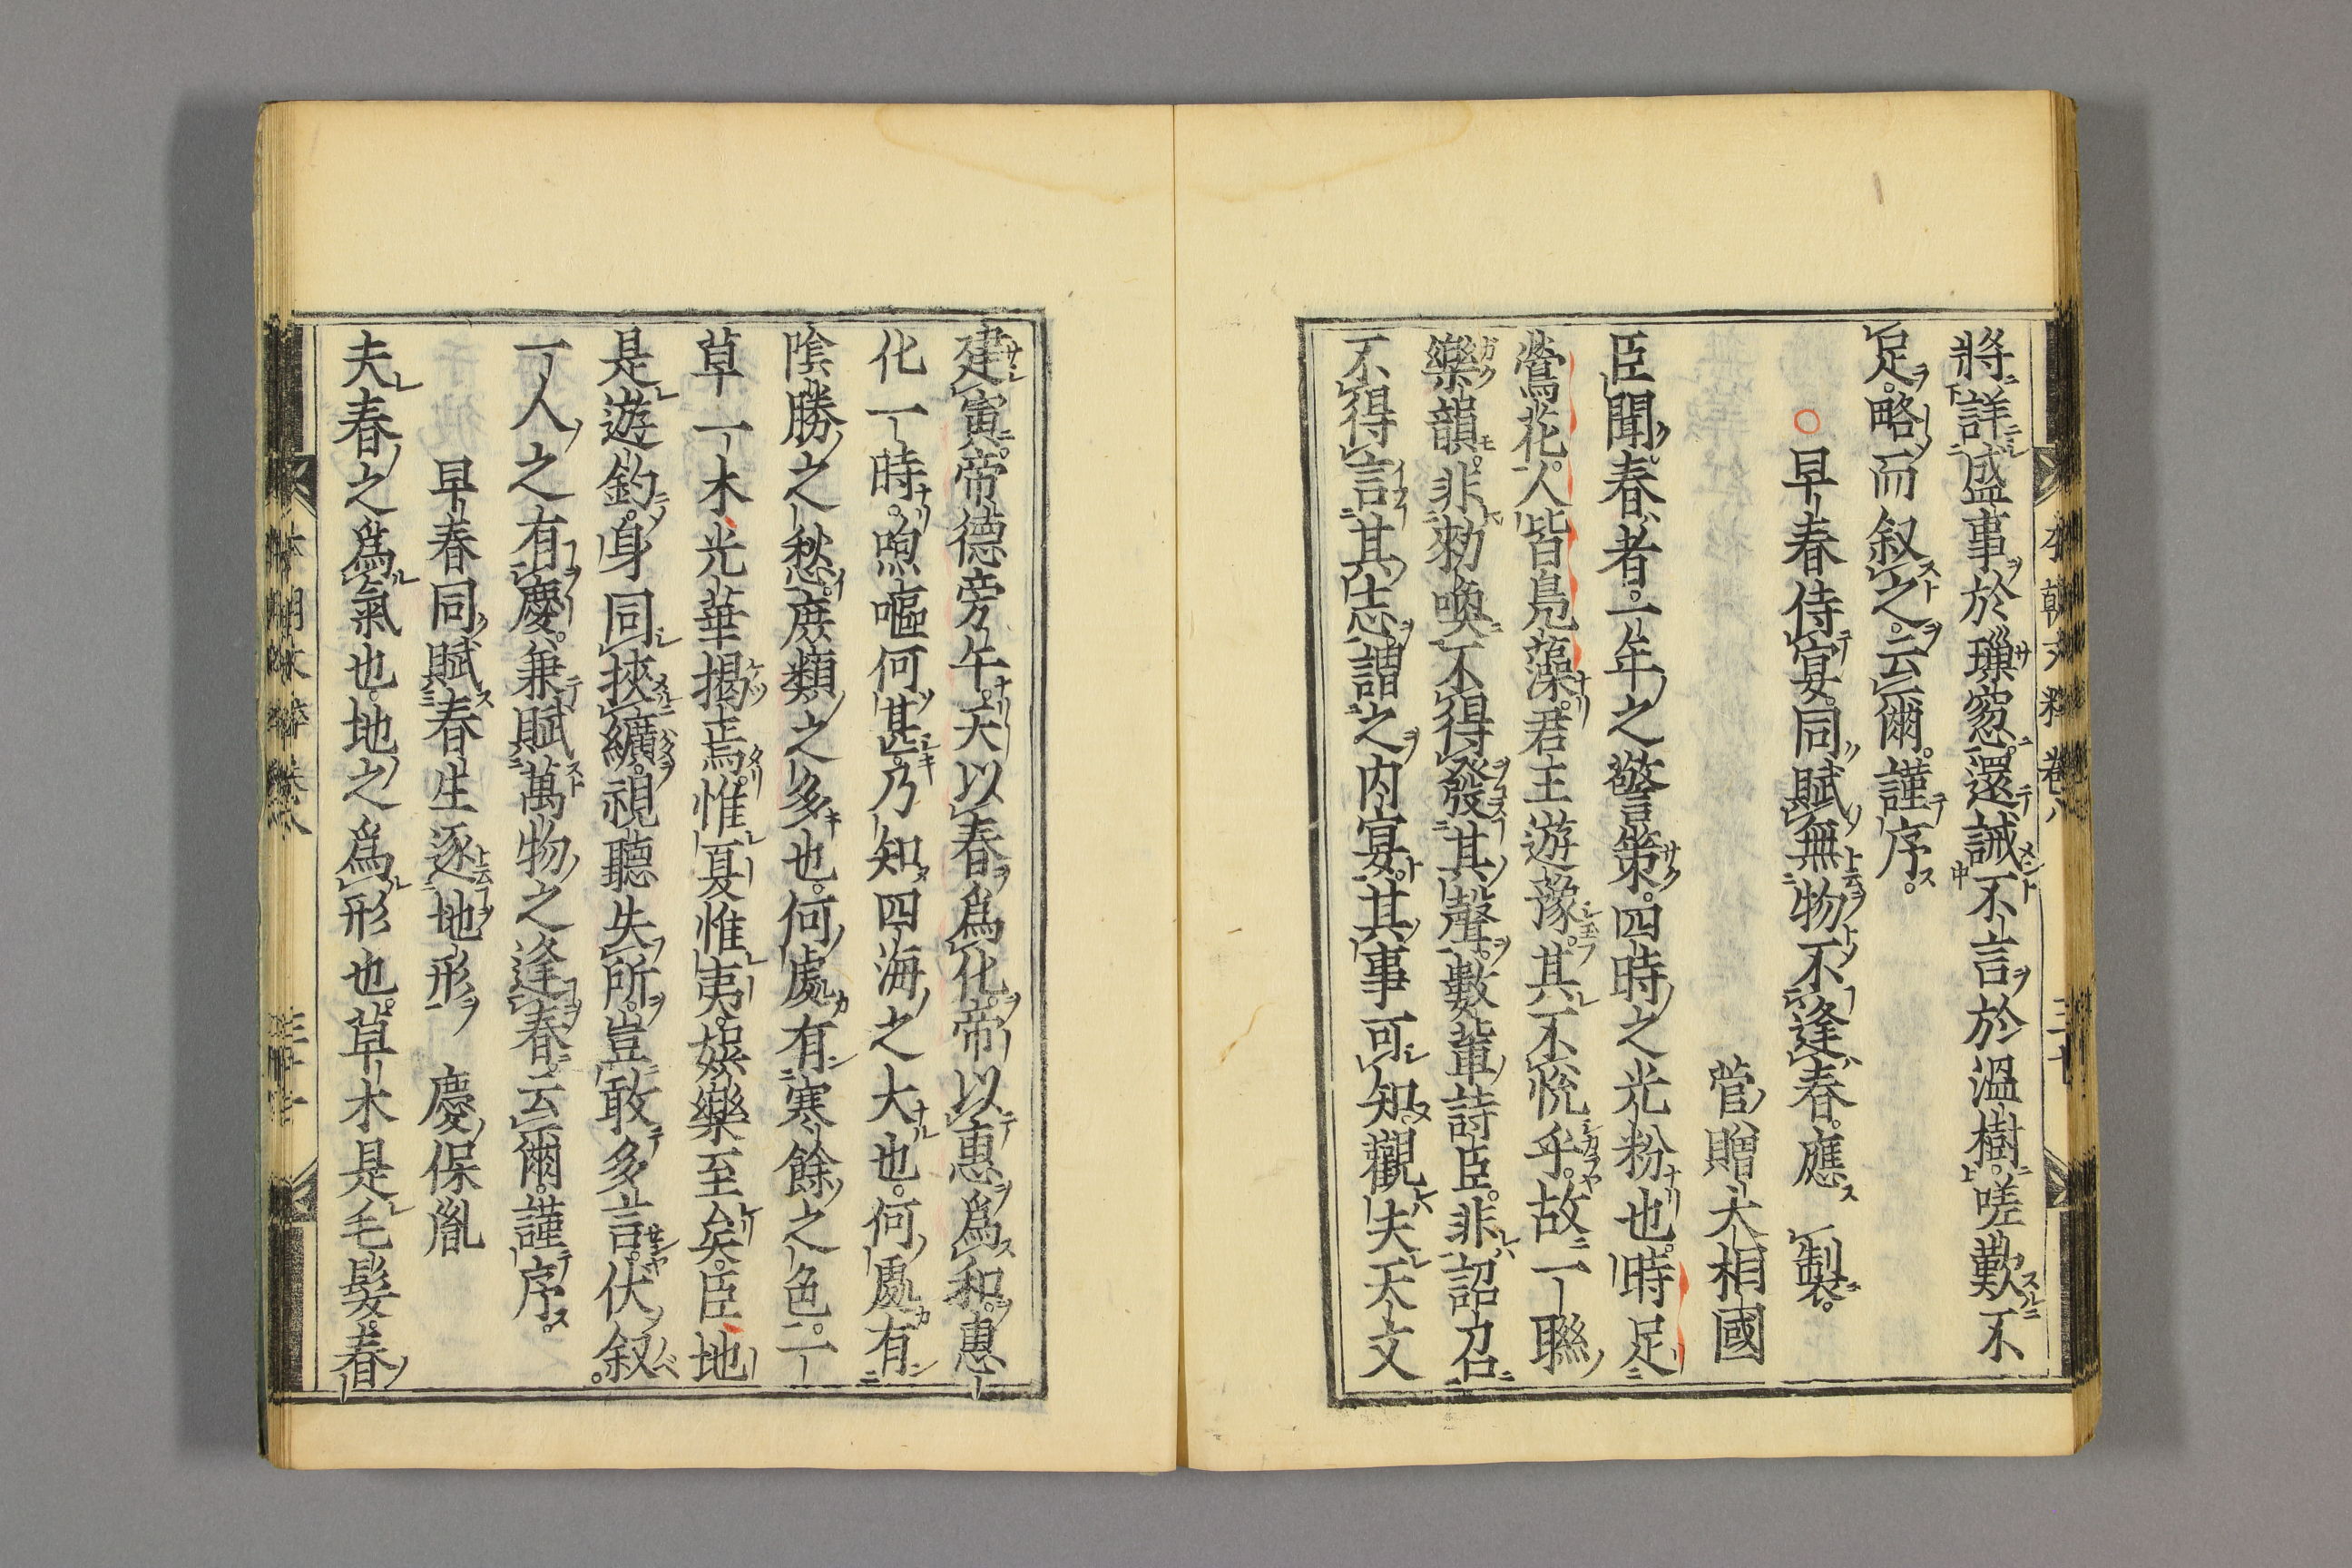 將詳盛事於璅窓。還誡不言於溫樹。嗟歎不
足。略而叙之。云爾。謹序。
○早春侍宴。同賦無物不逢春。應製。
菅贈大相國
臣聞。春者。一年之警策。四時之光粉也。時足
鶯花。人皆鳧藻。君王遊豫。其不悅乎。故一聯
樂韻。非勅喚不得發其聲。數輩詩臣。非詔召
不得言其志。謂之內宴。其事可知。觀夫天文
建寅。帝德旁午。天以春爲化。帝以惠爲和。惠
化一時。煦嘔何甚。乃知四海之大也。何處有
陰勝之愁。庶類之多也。何處有寒餘之色。一
草一木。光華揭焉。惟夏惟夷。娛樂至矣。臣地
是遊釣。身同挾纊。視聽失所。豈敢多言。伏叙
一人之有慶。兼賦萬物之逢春。云爾。謹序。
早春同賦春生逐地形 慶保胤
夫春之爲氣也。地之爲形也。草木是毛髮。春
本朝文粹卷八